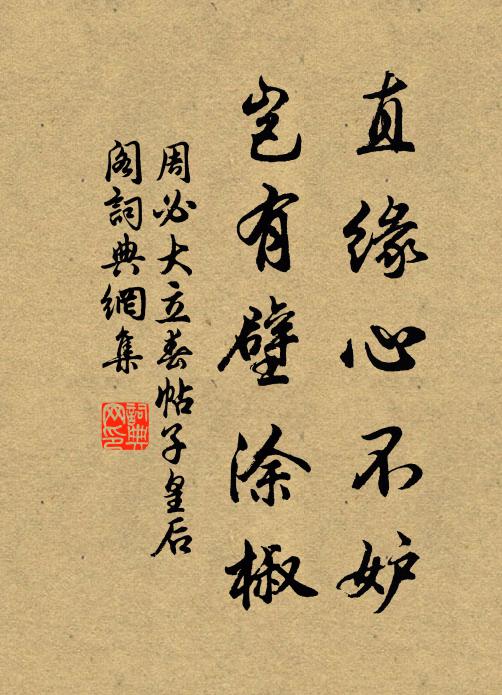 直缘心不妒
岂有壁涂椒
周必大立春帖子皇后
阁詞典網集
詞典网印